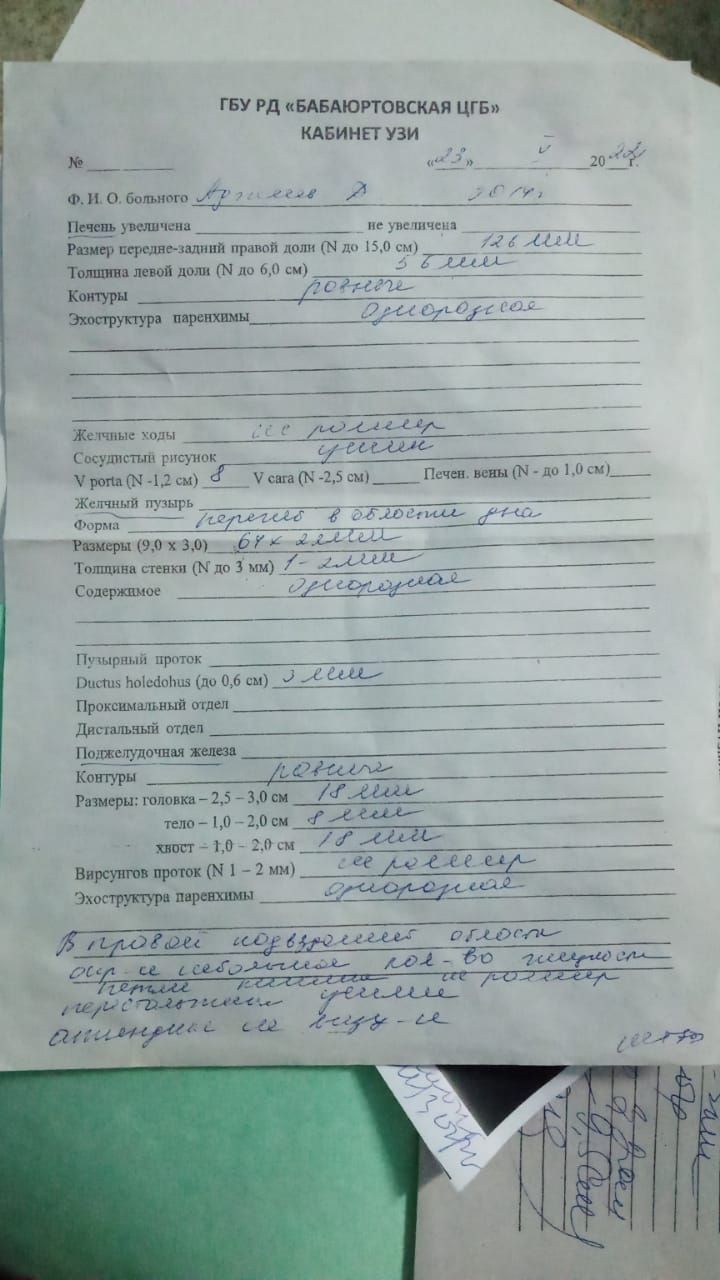 ГБУ РД «БАБАЮРТОВСКАЯ ЦГБ»
КАБИНЕТ УЗИ
№ «23» V 2022г.
Ф. И. О. больного Д 2014г
Печень увеличена не увеличена
Размер передне-задний правой доли (N до 15,0 см) 126 мм
Толщина левой доли (N до 6,0 см) 56 мм
Контуры ровные
Эхоструктура паренхимы однородная
Желчные ходы не расшир
Сосудистый рисунок
V porta (N -1,2 см) 8 V cara (N -2,5 см) Печен. вены (N - до 1,0 см)
Желчный пузырь
Форма перегиб в области дна
Размеры (9,0 х 3,0) 64 х мм
Толщина стенки (N до 3 мм) 1-2мм
Содержимое однородная
Пузырный проток
Ductus holedohus (до 0,6 см) 3 мм
Проксимальный отдел
Дистальный отдел
Поджелудочная железа
Контуры ровные
Размеры: головка – 2,5 – 3,0 см 18 мм
тело – 1,0 – 2,0 см 8 мм
хвост – 1,0 – 2,0 см 18 мм
Вирсунгов проток (N 1 – 2 мм) не расшир
Эхоструктура паренхимы однородная
В правой подвздошной области
опр-я небольшое кол-во жидкости
петли не расшир
перистальтика
аппендикс не визу-я